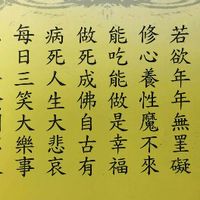 若欲年年無罣礙
修心養性魔不來
能吃能做是幸福
做死成佛自古有
病死人生大悲哀
每日三笑大樂事